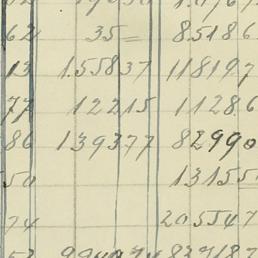 62 35= 85186
13 155837 118197
77 12215 11286
86 139377 82990
50 13155
74 205547